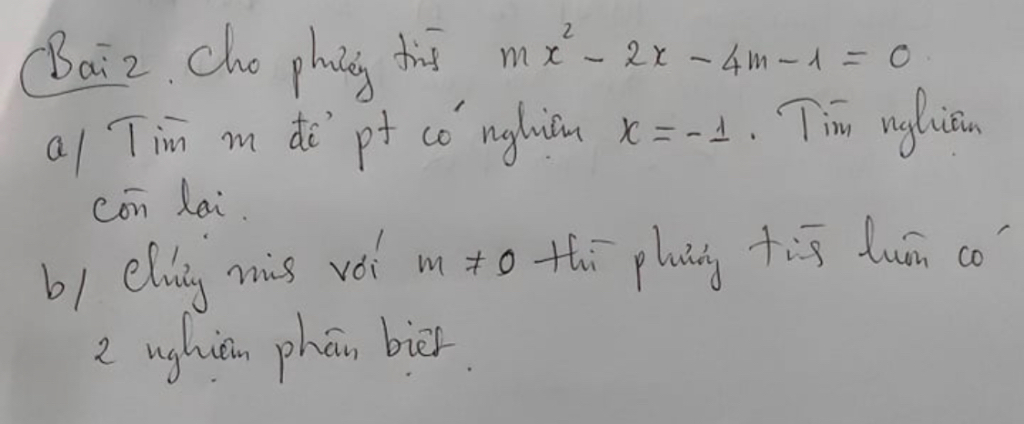 Bài 2. Cho phương trình mx² - 2x - 4m - 1 = 0.
a/ Tìm m để pt có nghiệm x = -1. Tìm nghiệm
còn lại.
b/ Chứng minh với m ≠ 0 thì phương trình luôn có
2 nghiệm phân biệt.